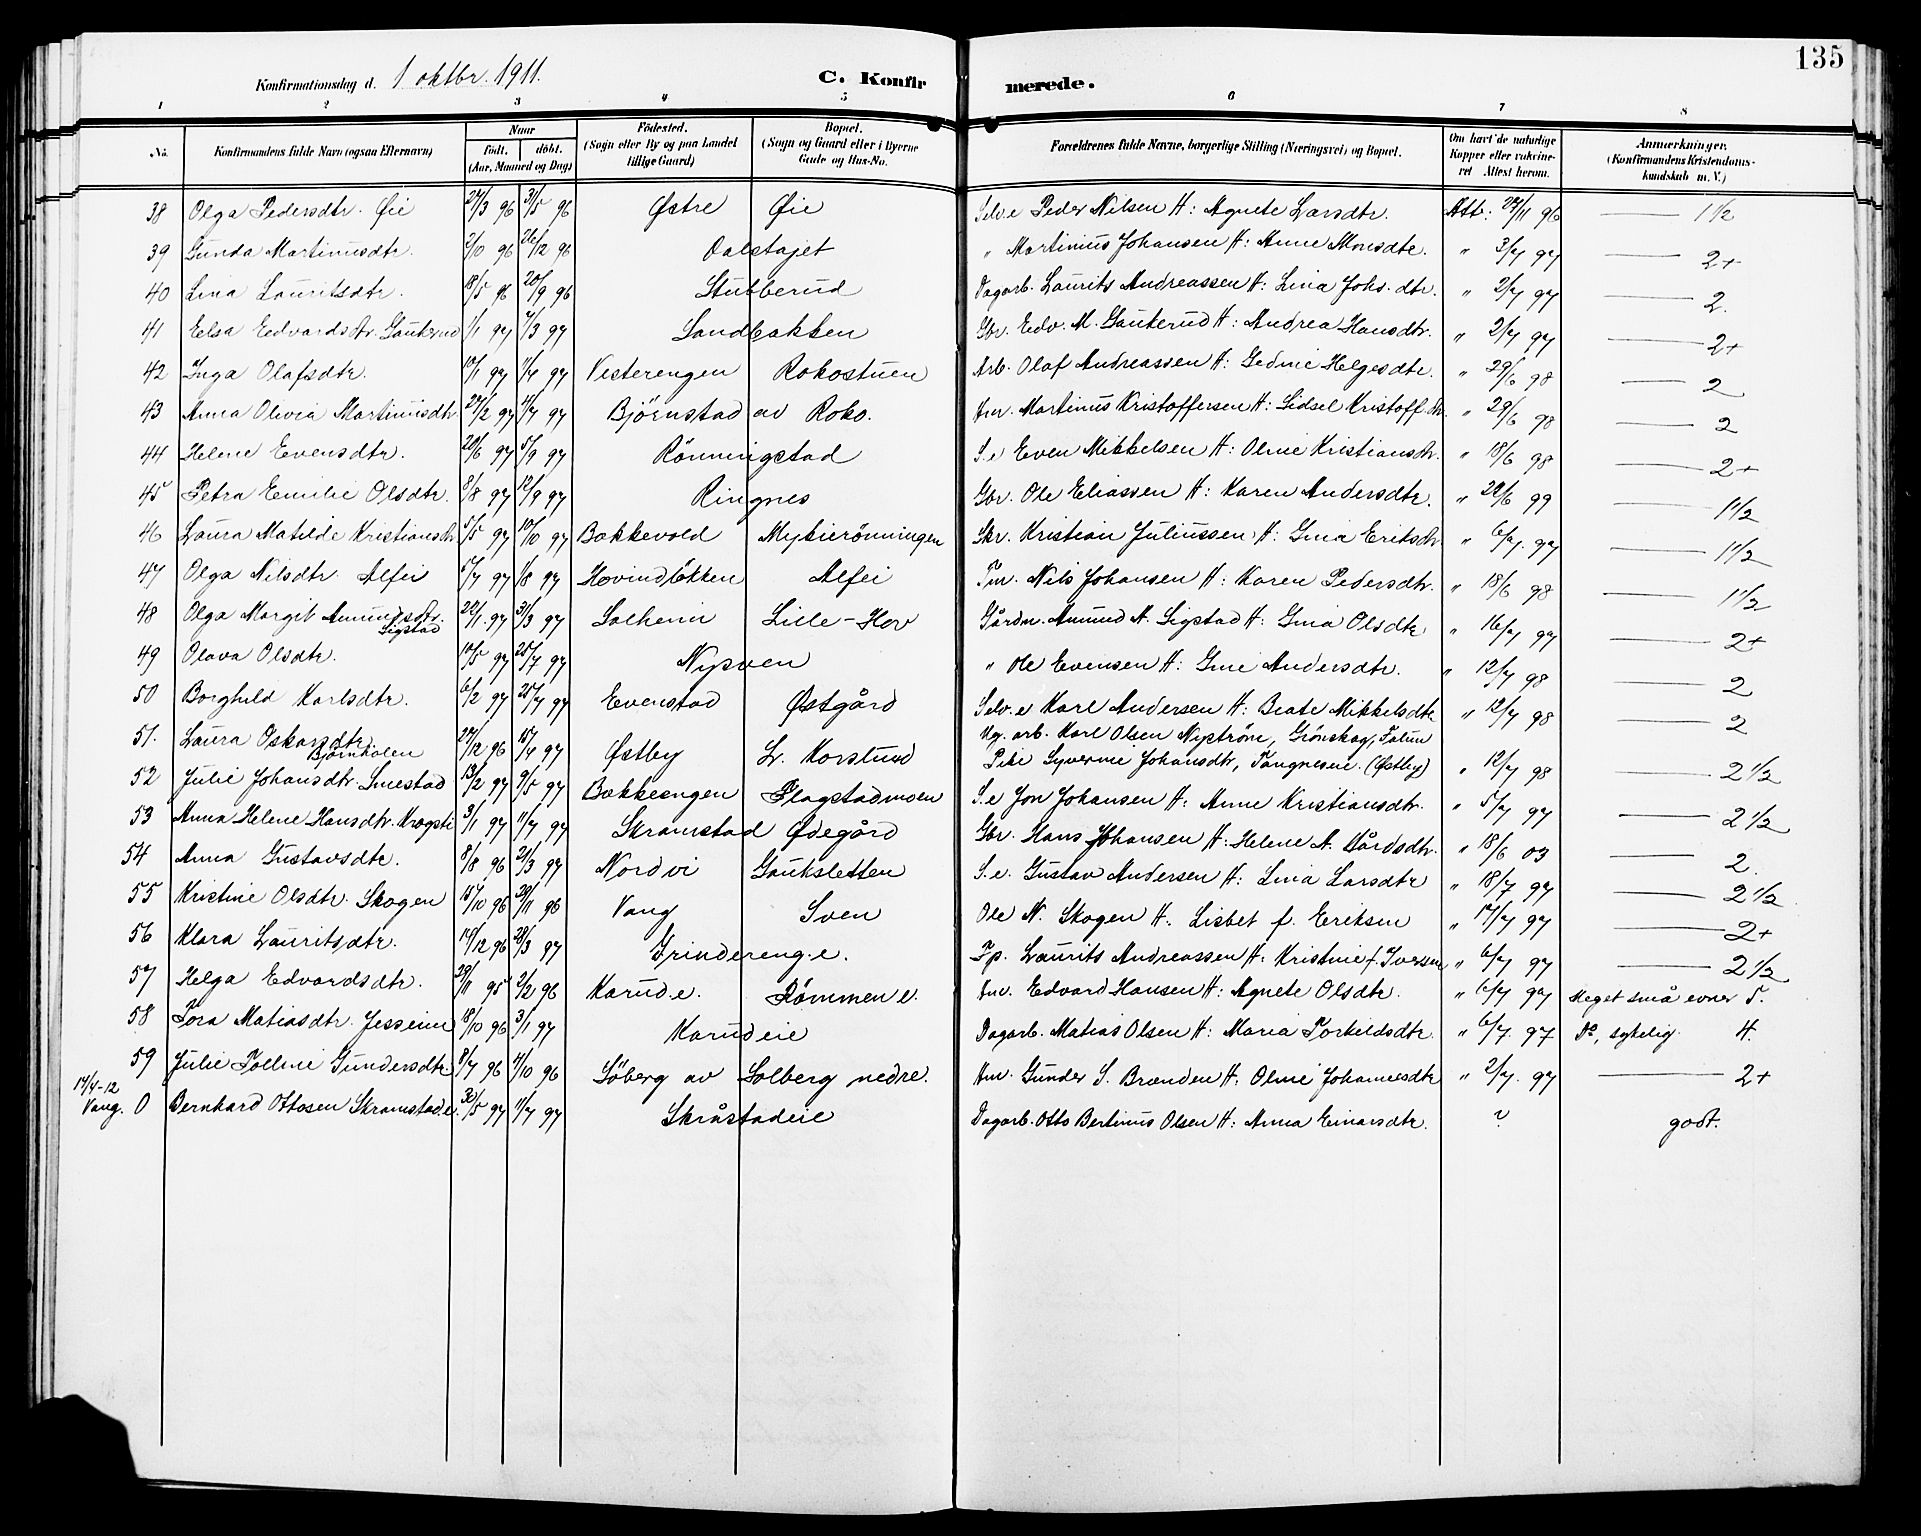 135
Konfirmationsdag d. 1 oktbr. 1911.
C. Konfirmerede.
1 2 3 4 5 6 7 8
No.
Konfirmandens fulde Navn (ogsaa Efternavn)
Naar
født. døbt.
(Aar, Maaned og Dag)
Födested.
(Sogn eller By og paa Landet tillige Gaard)
Bopæl.
(Sogn og Gaard eller i Byerne Gade og Hus-No.
Forældrenes fulde Navne, borgerlige Stilling (Næringsvei) og Bopæl.
Om havt de naturlige Kopper eller vakcineret Attest herom.
Anmærkninger.
(Konfirmandens Kristendomskundskab m. V.)
38 Olga Pedersdtr. Øie 27/3 96 31/5 96 Østre Øie Selv.e Peder Nilsen H: Agnete Larsdtr. Att: 27/11 96 1 1/2
39 Gunda Martinusdtr. 2/10 96 26/12 96 Dalstajet " Martinius Johansen H: Anne Monsdtr. " 3/7 97 2+
40 Lina Lauritsdtr. 18/5 96 20/9 96 Stubberud Dagarb. Laurits Andreassen H: Lina Johs. dtr. " 2/7 97 2.
41 Eelsa Eedvardsdtr. Gaukerud 1/1 97 7/3 97 Sandbakken Gbr. Edv. M. Gaukerud H: Andrea Hansdtr. " 2/7 97 2+
42 Inga Olafsdtr. 10/1 97 1/4 97 Vesterengen Rokostuen Arb. Olaf Andreassen H: Gedine Helgesdtr. " 29/6 98 2
43 Anna Olivia Martinusdtr. 27/2 97 4/7 97 Björnstad av Roko. Hm. Martinus Kristoffersen H: Sidsel Kristoff.dtr. " 29/6 98 2
44 Helene Evensdtr. 20/6 97 5/9 97 Rönningstad S.e Even Mikkelsen H: Oline Kristiansdtr. " 18/6 98 2+
45 Petra Eemilie Olsdtr. 8/8 97 12/9 97 Ringnes Gbr. Ole Eliassen H: Karen Andersdtr. " 22/6 99 1 1/2
46 Laura Matilde Kristiansdtr 5/5 97 10/10 97 Bakkevold Mykierönningen Skr. Kristian Juliussen H: Gina Eriksdtr " 6/7. 97 1 1/2
47 Olga Nilsdtr. Alfei 5/7 97 1/8 97 Hovindløkken Alfei Tm. Nils Johansen H: Karen Pedersdtr. " 18/6 98 1 1/2
48 Olga Margit Amundsdtr. Sigstad 22/1. 97 31/3 97 Solheim Lille-Hov Gårdm. Amund A. Sigstad H: Gina Olsdtr " 16/7 97 2+
49 Olava Olsdtr. 10/5 97 25/7 97 Nysven " Ole Evensen H: Gine Andersdtr. " 12/7 98 2
50 Borghild Karlsdtr. 6/2 97 25/7 97 Evenstad Østgård Selv.e Karl Andersen H: Beate Mikkelsdtr " 12/7 98 2
51. Laura Oskarsdtr. Björnholen 27/12 96 15/4 97 Østby L. Korslund Ug. arb. Karl Olsen Nyström, Grönskog, Falun
Pike Syverine Johansdtr, Tangneseie. (Østby) " 12/7 98 2 1/2
52 Julie Johansdtr. Smestad 13/2 97 9/5 97 Bakkeengen Flagstadmoen S.e Jon Johansen H: Anne Kristiansdtr. " 5/7 97 2 1/2
53 Anna Helene Hansdtr. Krogsti 3/1 97 11/7 97 Skramstad Ødegård Gbr. Hans Johansen H: Helene A. Bårdsdtr. " 18/6 03 2.
54 Anna Gustavsdtr. 8/8 96 21/3 97 Nordvi Gauksletten S.e. Gustav Andersen H: Lina Larsdtr " 18/7 97 2 1/2
55 Kristine Olsdtr. Skogen 15/10 96 29/11 96 Vang Sven Ole N. Skogen H: Lisbet f. Eriksen " 17/7 97 2+
56 Klara Lauritsdtr. 14/12 96 28/3 97 Grindereng.e. Fp. Laurits Andreassen H: Kristine f. Iversen " 6/7 97 2 1/2
57 Helga Edvardsdtr. 29/11 95 2/2 96 Karud.e. Rømmen e. Hm. Edvard Hansen H: Agnete Olsdtr. " 6/7 97 Meget små evner 5.
58 Tora Matiasdtr. Jesseim 18/10 96 3/1 97 Karudeie Dagarb. Matias Olsen H: Maria Torkildsdtr. " 6/7. 97 Do, sykelig. 4.
59 Julie Polline Gundersdtr. 8/7 96 4/10 96 Söberg av Solberg nedre. Hm. Gunder S. Brænden H: Oline Johannesdtr " 2/7. 97 2+
14/4-12
Vang. 0 Bernhard Ottosen Skramstade. 30/5 97 11/7 97 Skråstadeie Dagarb. Otto Bertinus Olsen H: Anna Einarsdtr. ? godt.